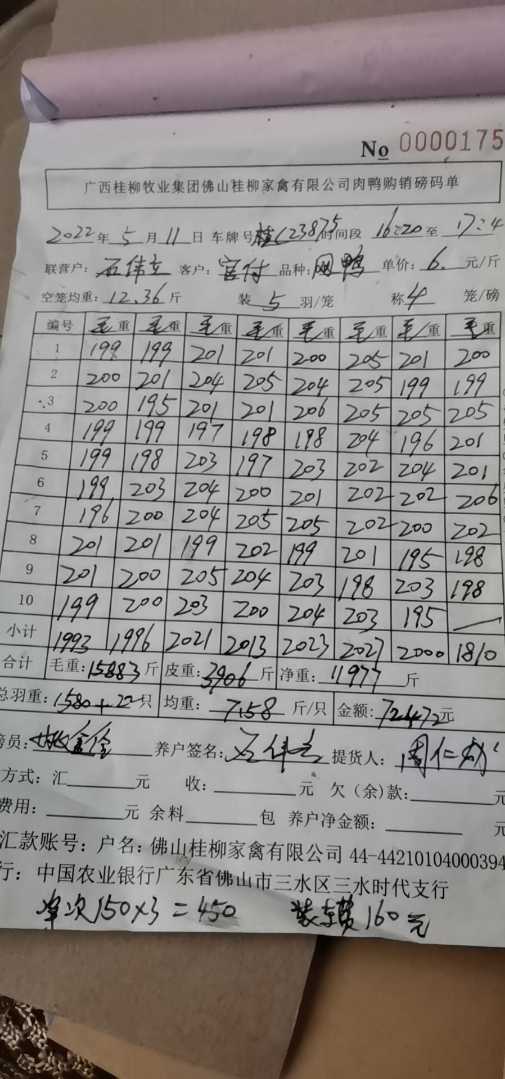 No 0000175
广西桂柳牧业集团佛山桂柳家禽有限公司肉鸭购销磅码单
2022年5月11日 车牌号 23875 时间段 16:20 至 17:4
联营户: 石伟立 客户: 官付 品种: 鸭 单价: 6. 元/斤
空笼均重: 12.36 斤 装 5 羽/笼 称 4 笼/磅
编号 毛重 毛重 毛重 毛重 毛重 毛重 毛重 毛重
1 199 199 201 201 200 205 201 200
2 200 201 204 205 204 205 199 199
3 200 195 201 201 206 205 205 205
4 199 199 197 198 198 204 196 201
5 199 198 203 197 203 202 204 201
6 199 203 204 200 201 202 202 206
7 196 200 204 205 205 202 200 202
8 201 201 199 202 199 201 195 198
9 201 200 205 204 203 198 203 198
10 199 200 203 200 204 203 195
小计 1993 1996 2021 2013 2023 2027 2000 1810
合计 毛重: 15883 斤 皮重: 3906 斤 净重: 11977 斤
总羽重: 1580+22只 均重: 7.58 斤/只 金额: 72472元
员: 养户签名: 石伟立 提货人: 周仁
方式: 汇 元 收: 元 欠(余)款: 元
费用: 元 余料 包 养户净金额: 元
汇款账号: 户名: 佛山桂柳家禽有限公司 44-44210104000394
行: 中国农业银行广东省佛山市三水区三水时代支行
150×3=450 装车费160元